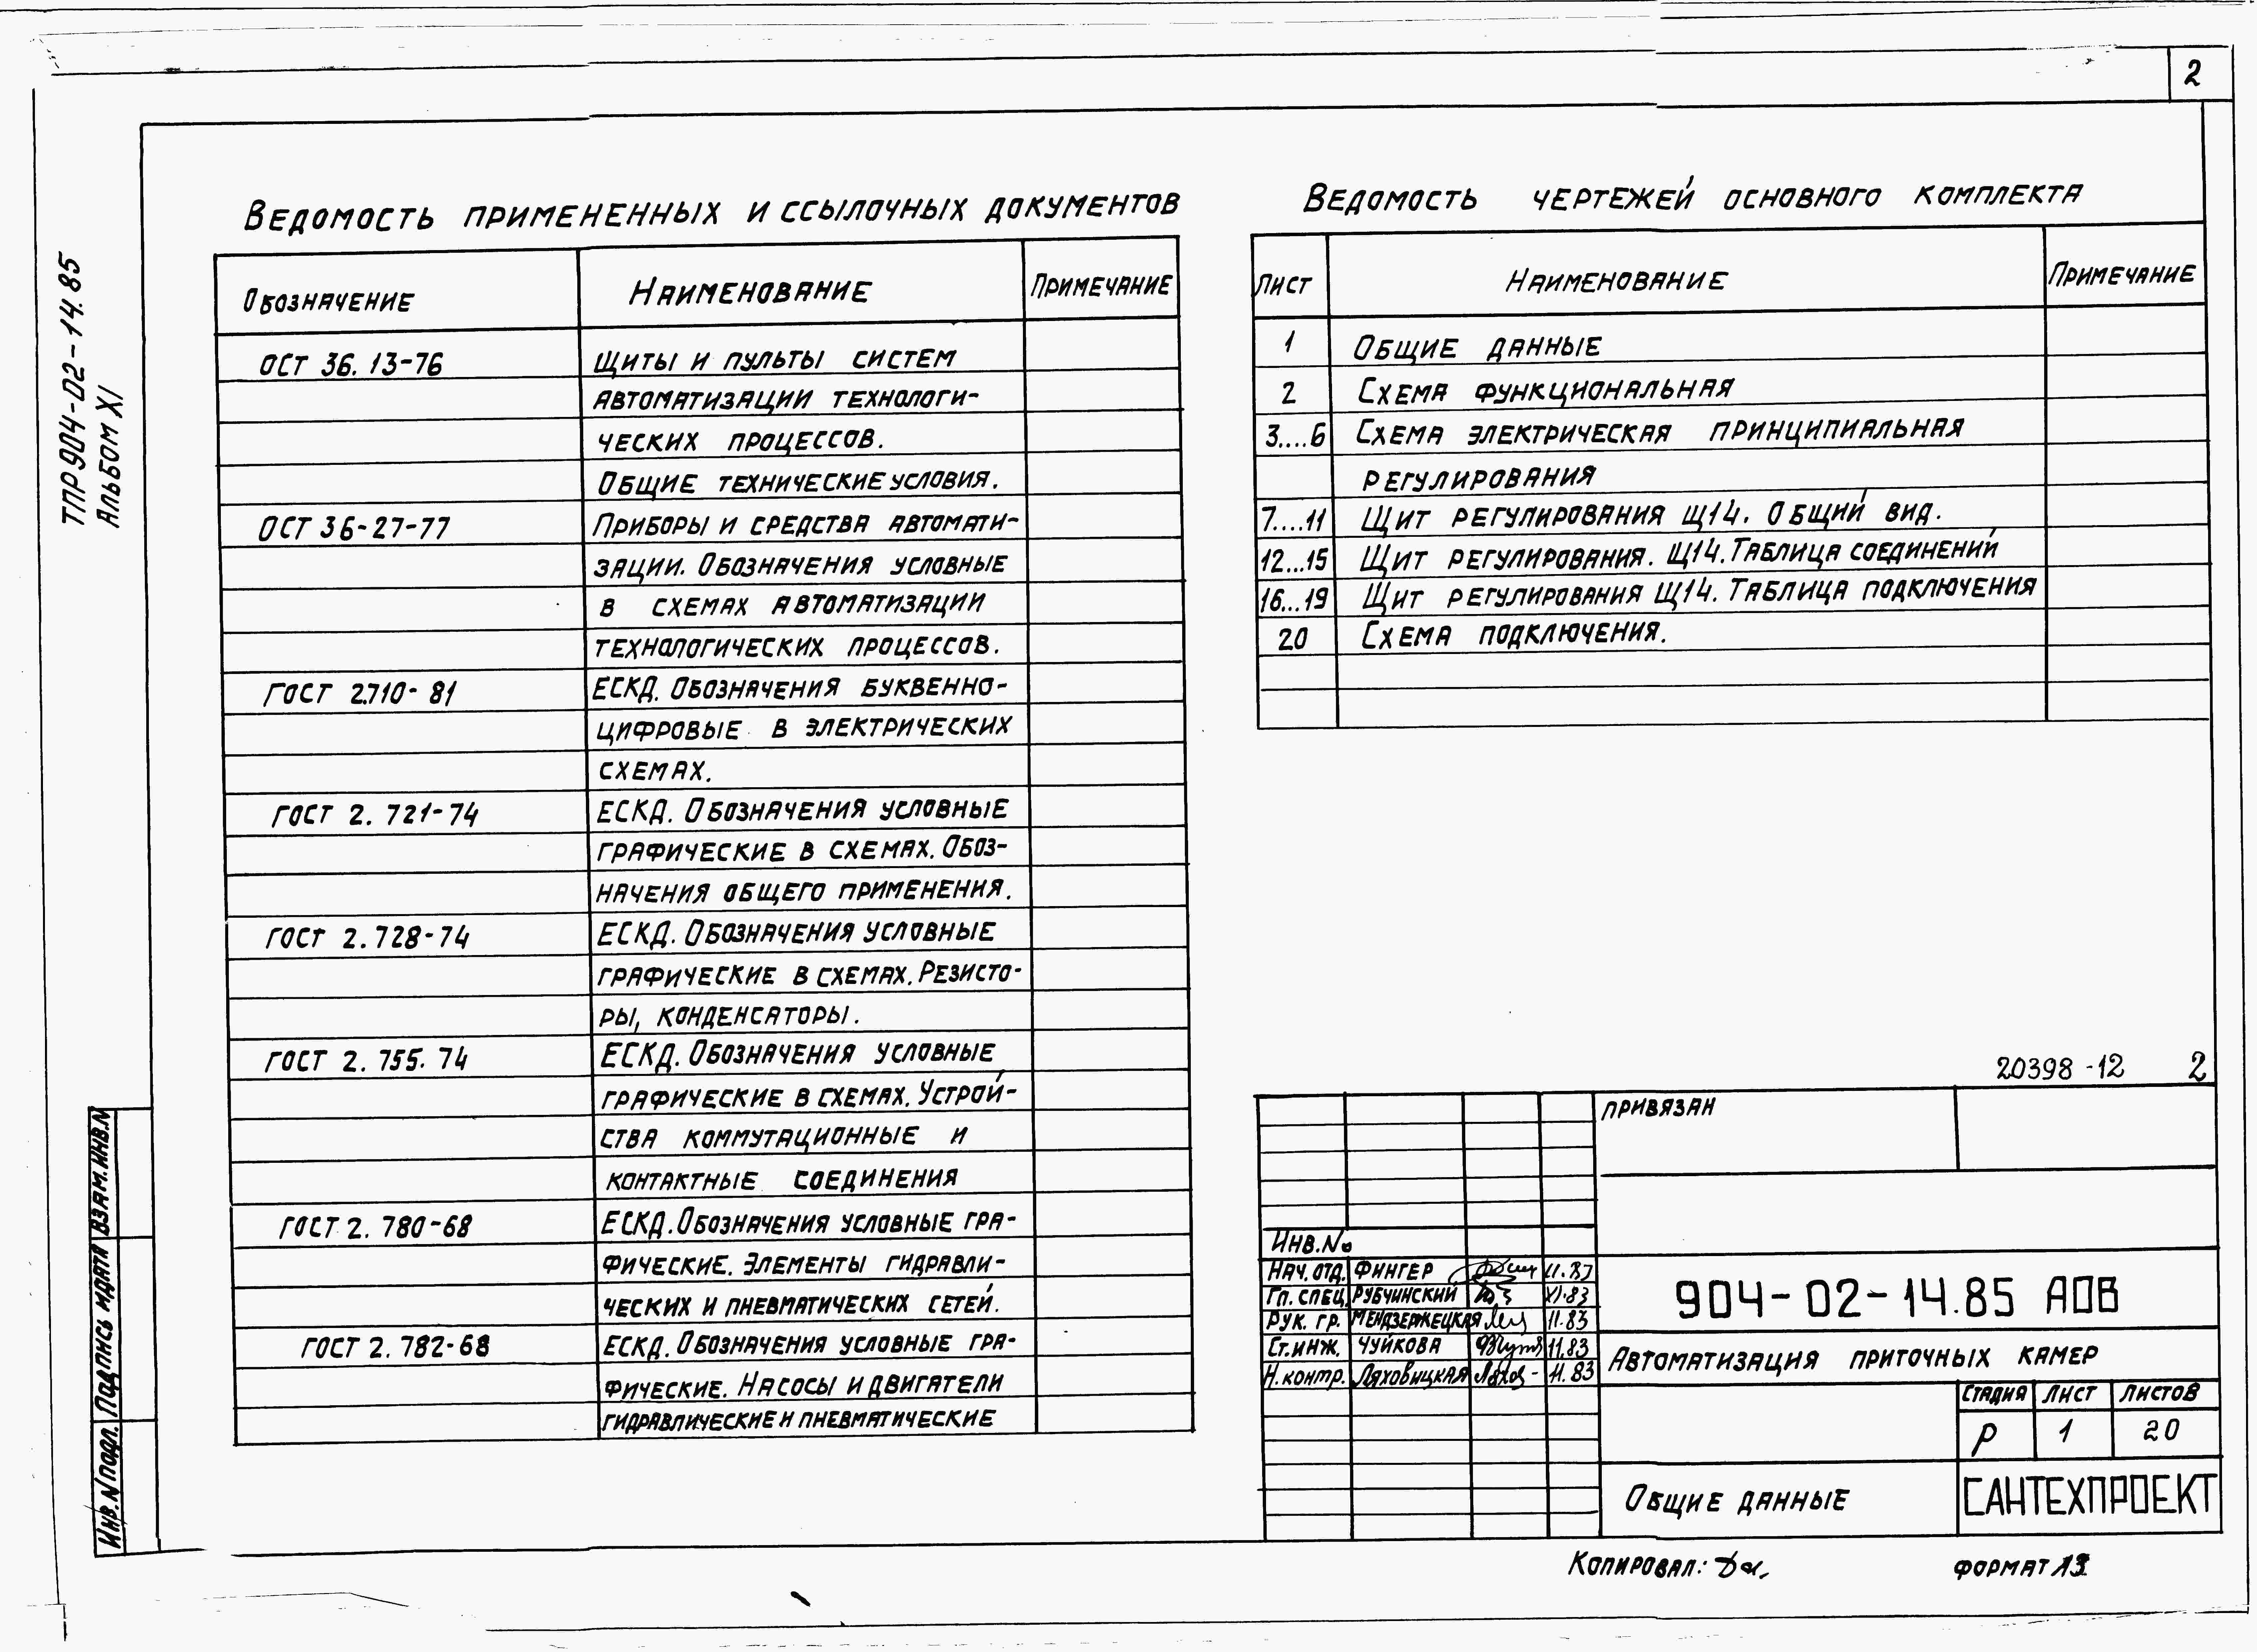 2
ТПР 904-02-14.85
Альбом XI
Ведомость примененных и ссылочных документов
Обозначение Наименование Примечание
ОСТ 36.13-76 Щиты и пульты систем
автоматизации технологи-
ческих процессов.
Общие технические условия.
ОСТ 36-27-77 Приборы и средства автомати-
зации. Обозначения условные
в схемах автоматизации
технологических процессов.
ГОСТ 2.710-81 ЕСКД. Обозначения буквенно-
цифровые в электрических
схемах.
ГОСТ 2.721-74 ЕСКД. Обозначения условные
графические в схемах. Обоз-
начения общего применения.
ГОСТ 2.728-74 ЕСКД. Обозначения условные
графические в схемах. Резисто-
ры, конденсаторы.
ГОСТ 2.755.74 ЕСКД. Обозначения условные
графические в схемах. Устрой-
ства коммутационные и
контактные соединения
ГОСТ 2.780-68 ЕСКД. Обозначения условные гра-
фические. Элементы гидравли-
ческих и пневматических сетей.
ГОСТ 2.782-68 ЕСКД. Обозначения условные гра-
фические. Насосы и двигатели
гидравлические и пневматические
Ведомость чертежей основного комплекта
Лист Наименование Примечание
1 Общие данные
2 Схема функциональная
3....6 Схема электрическая принципиальная
регулирования
7....11 Щит регулирования Щ14. Общий вид.
12...15 Щит регулирования. Щ14. Таблица соединений
16...19 Щит регулирования Щ14. Таблица подключения
20 Схема подключения.
20398-12 2
Привязан
Инв.№
Нач. отд. Фингер 11.83
Гл. спец. Рубчинский XI.83
Рук. гр. Мендзержецкая 11.83
Ст. инж. Чуйкова 11.83
Н. контр. Ляховицкая 11.83
904-02-14.85 АОВ
Автоматизация приточных камер
Стадия Лист Листов
Р 1 20
Общие данные
САНТЕХПРОЕКТ
Копировал:
Формат
Взам. инв. N
Подпись и дата
Инв. N подл.